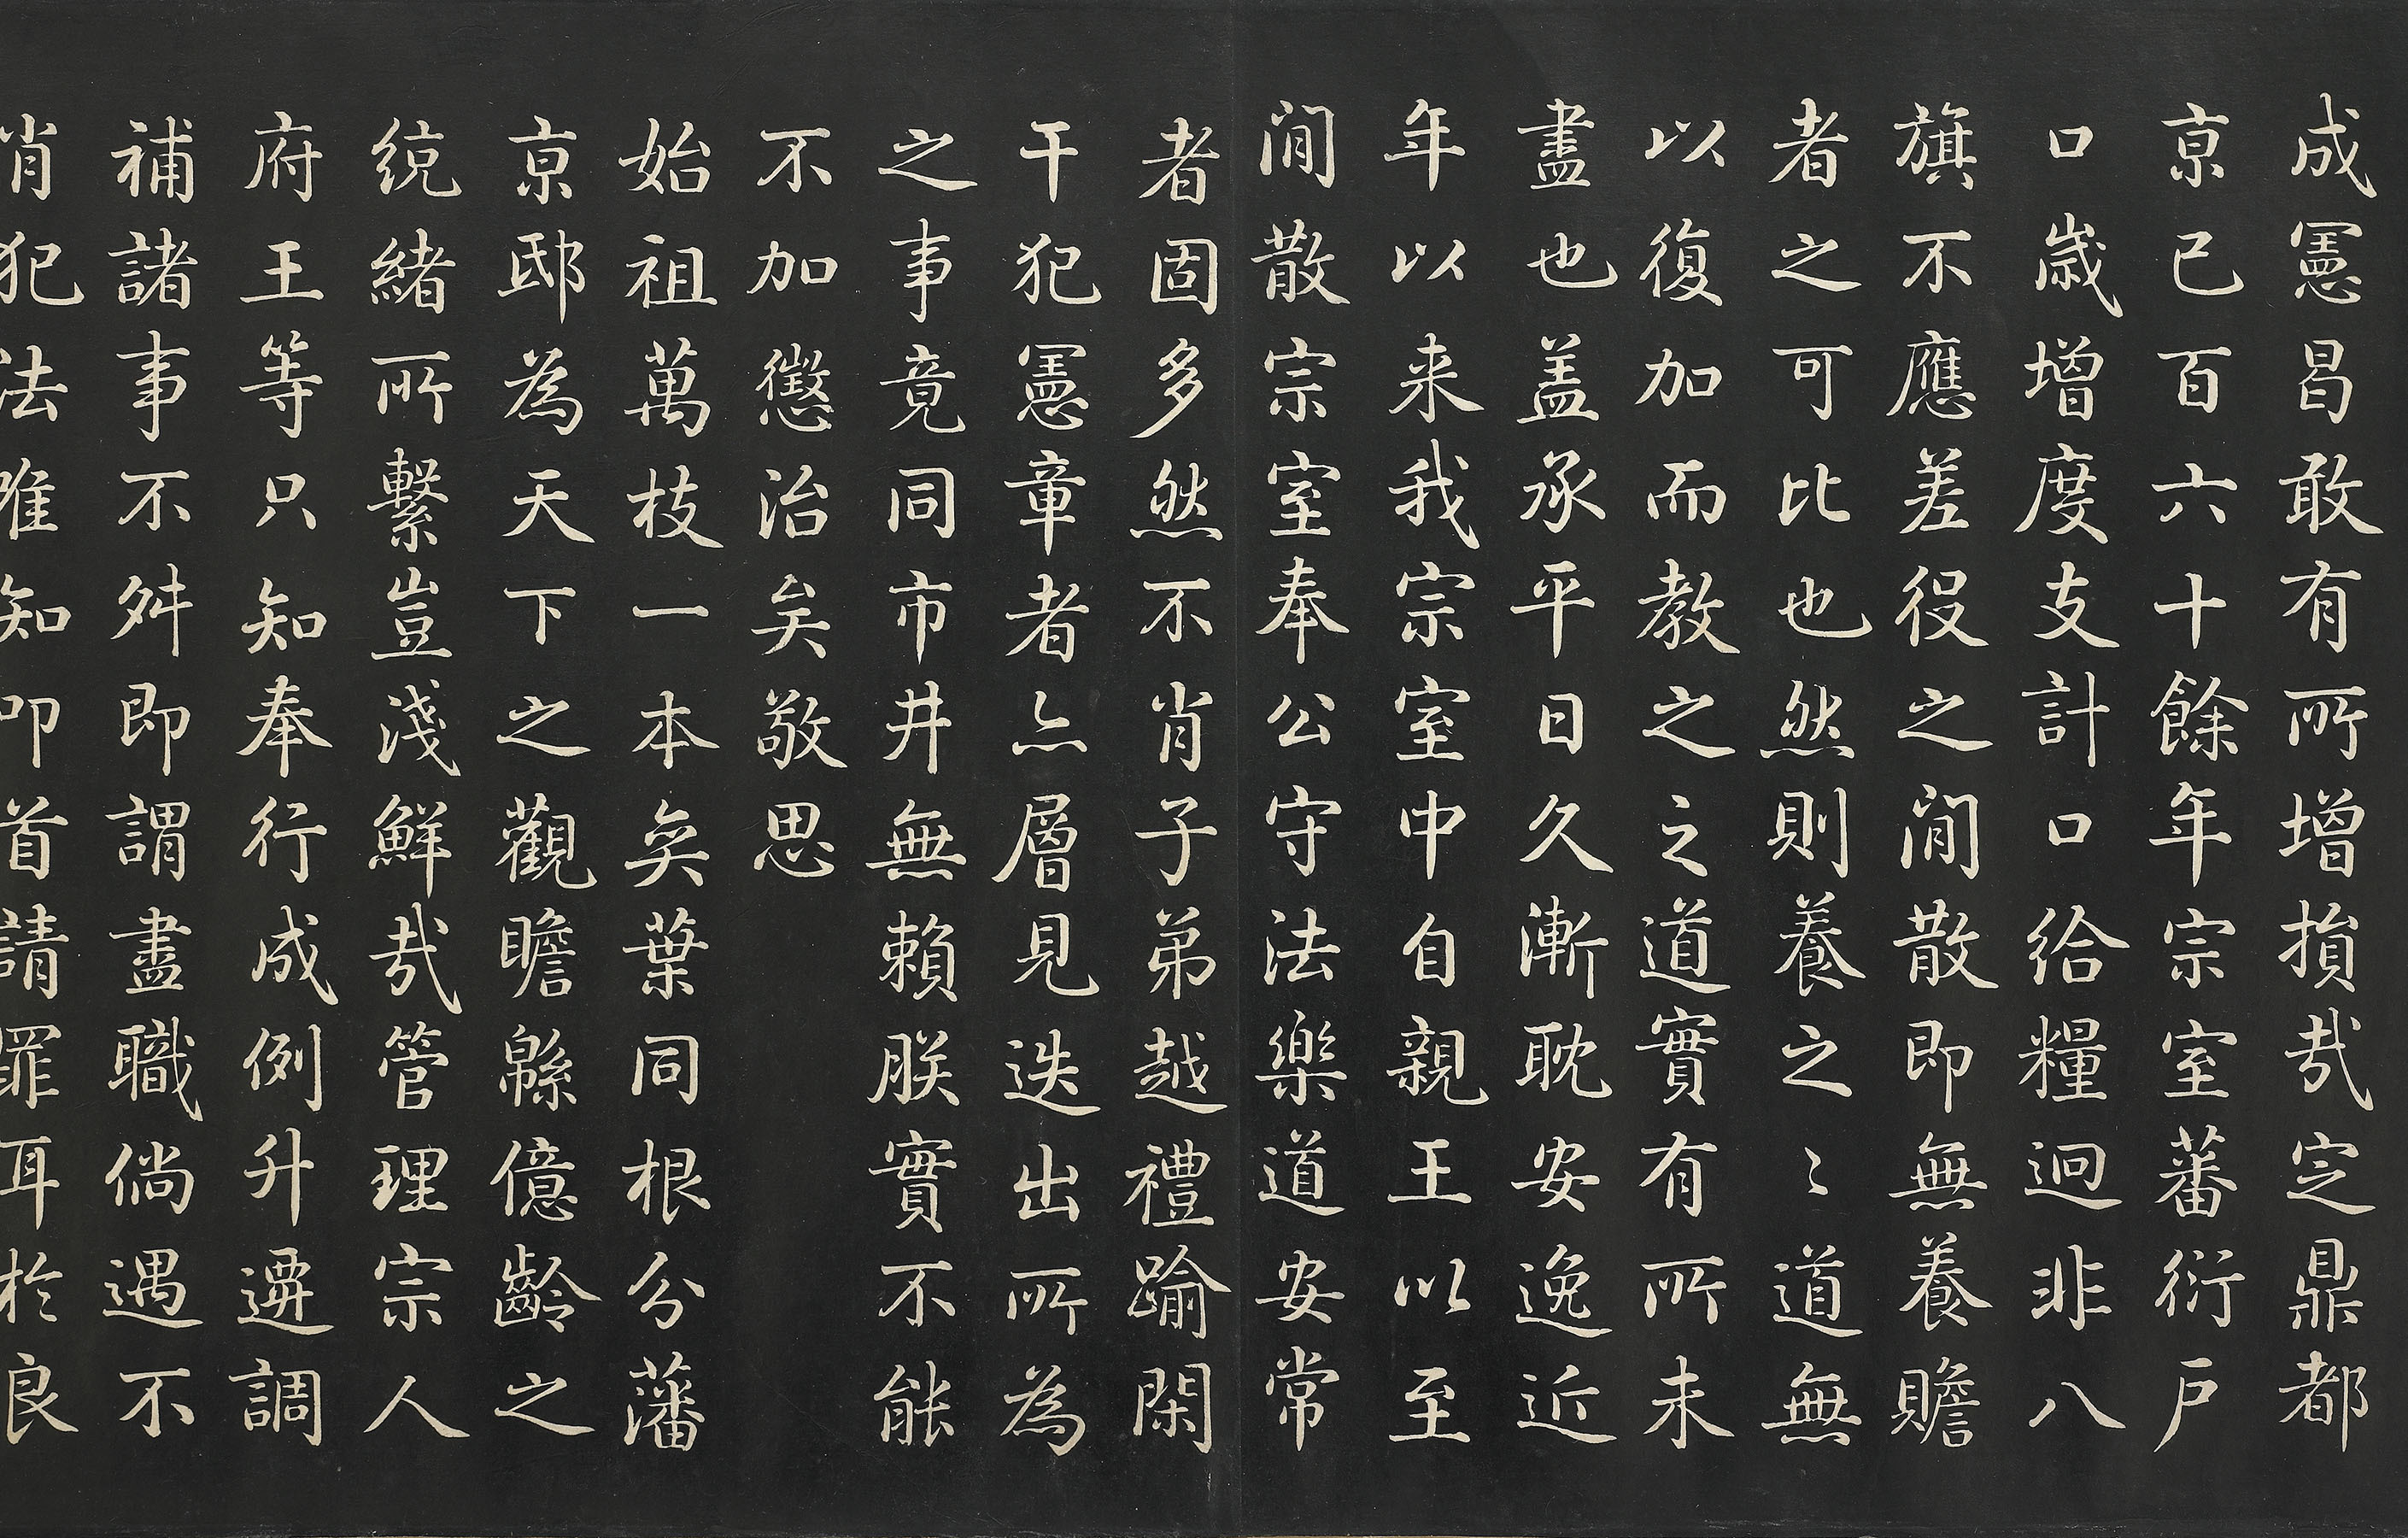 成憲曷敢有所增損㢤定鼎都
京已百六十餘年宗室蕃衍戶
口歲增度支計口給糧迥非八
旗不應差役之閒散即無養贍
者之可比也然則養之〻道無
以復加而教之之道實有所未
盡也盖承平日久漸耽安逸近
年以来我宗室中自親王以至
閒散宗室奉公守法樂道安常
者固多然不肖子弟越禮踰閑
干犯憲章者亦層見迭出所為
之事竟同市井無賴朕實不能
不加懲治矣敬思
始祖萬枝一本矣葉同根分藩
京邸為天下之觀瞻緜億齡之
統緒所繫豈淺鮮㢤管理宗人
府王等只知奉行成例升遷調
補諸事不舛即謂盡職倘遇不
肖犯法唯知叩首請罪耳於良